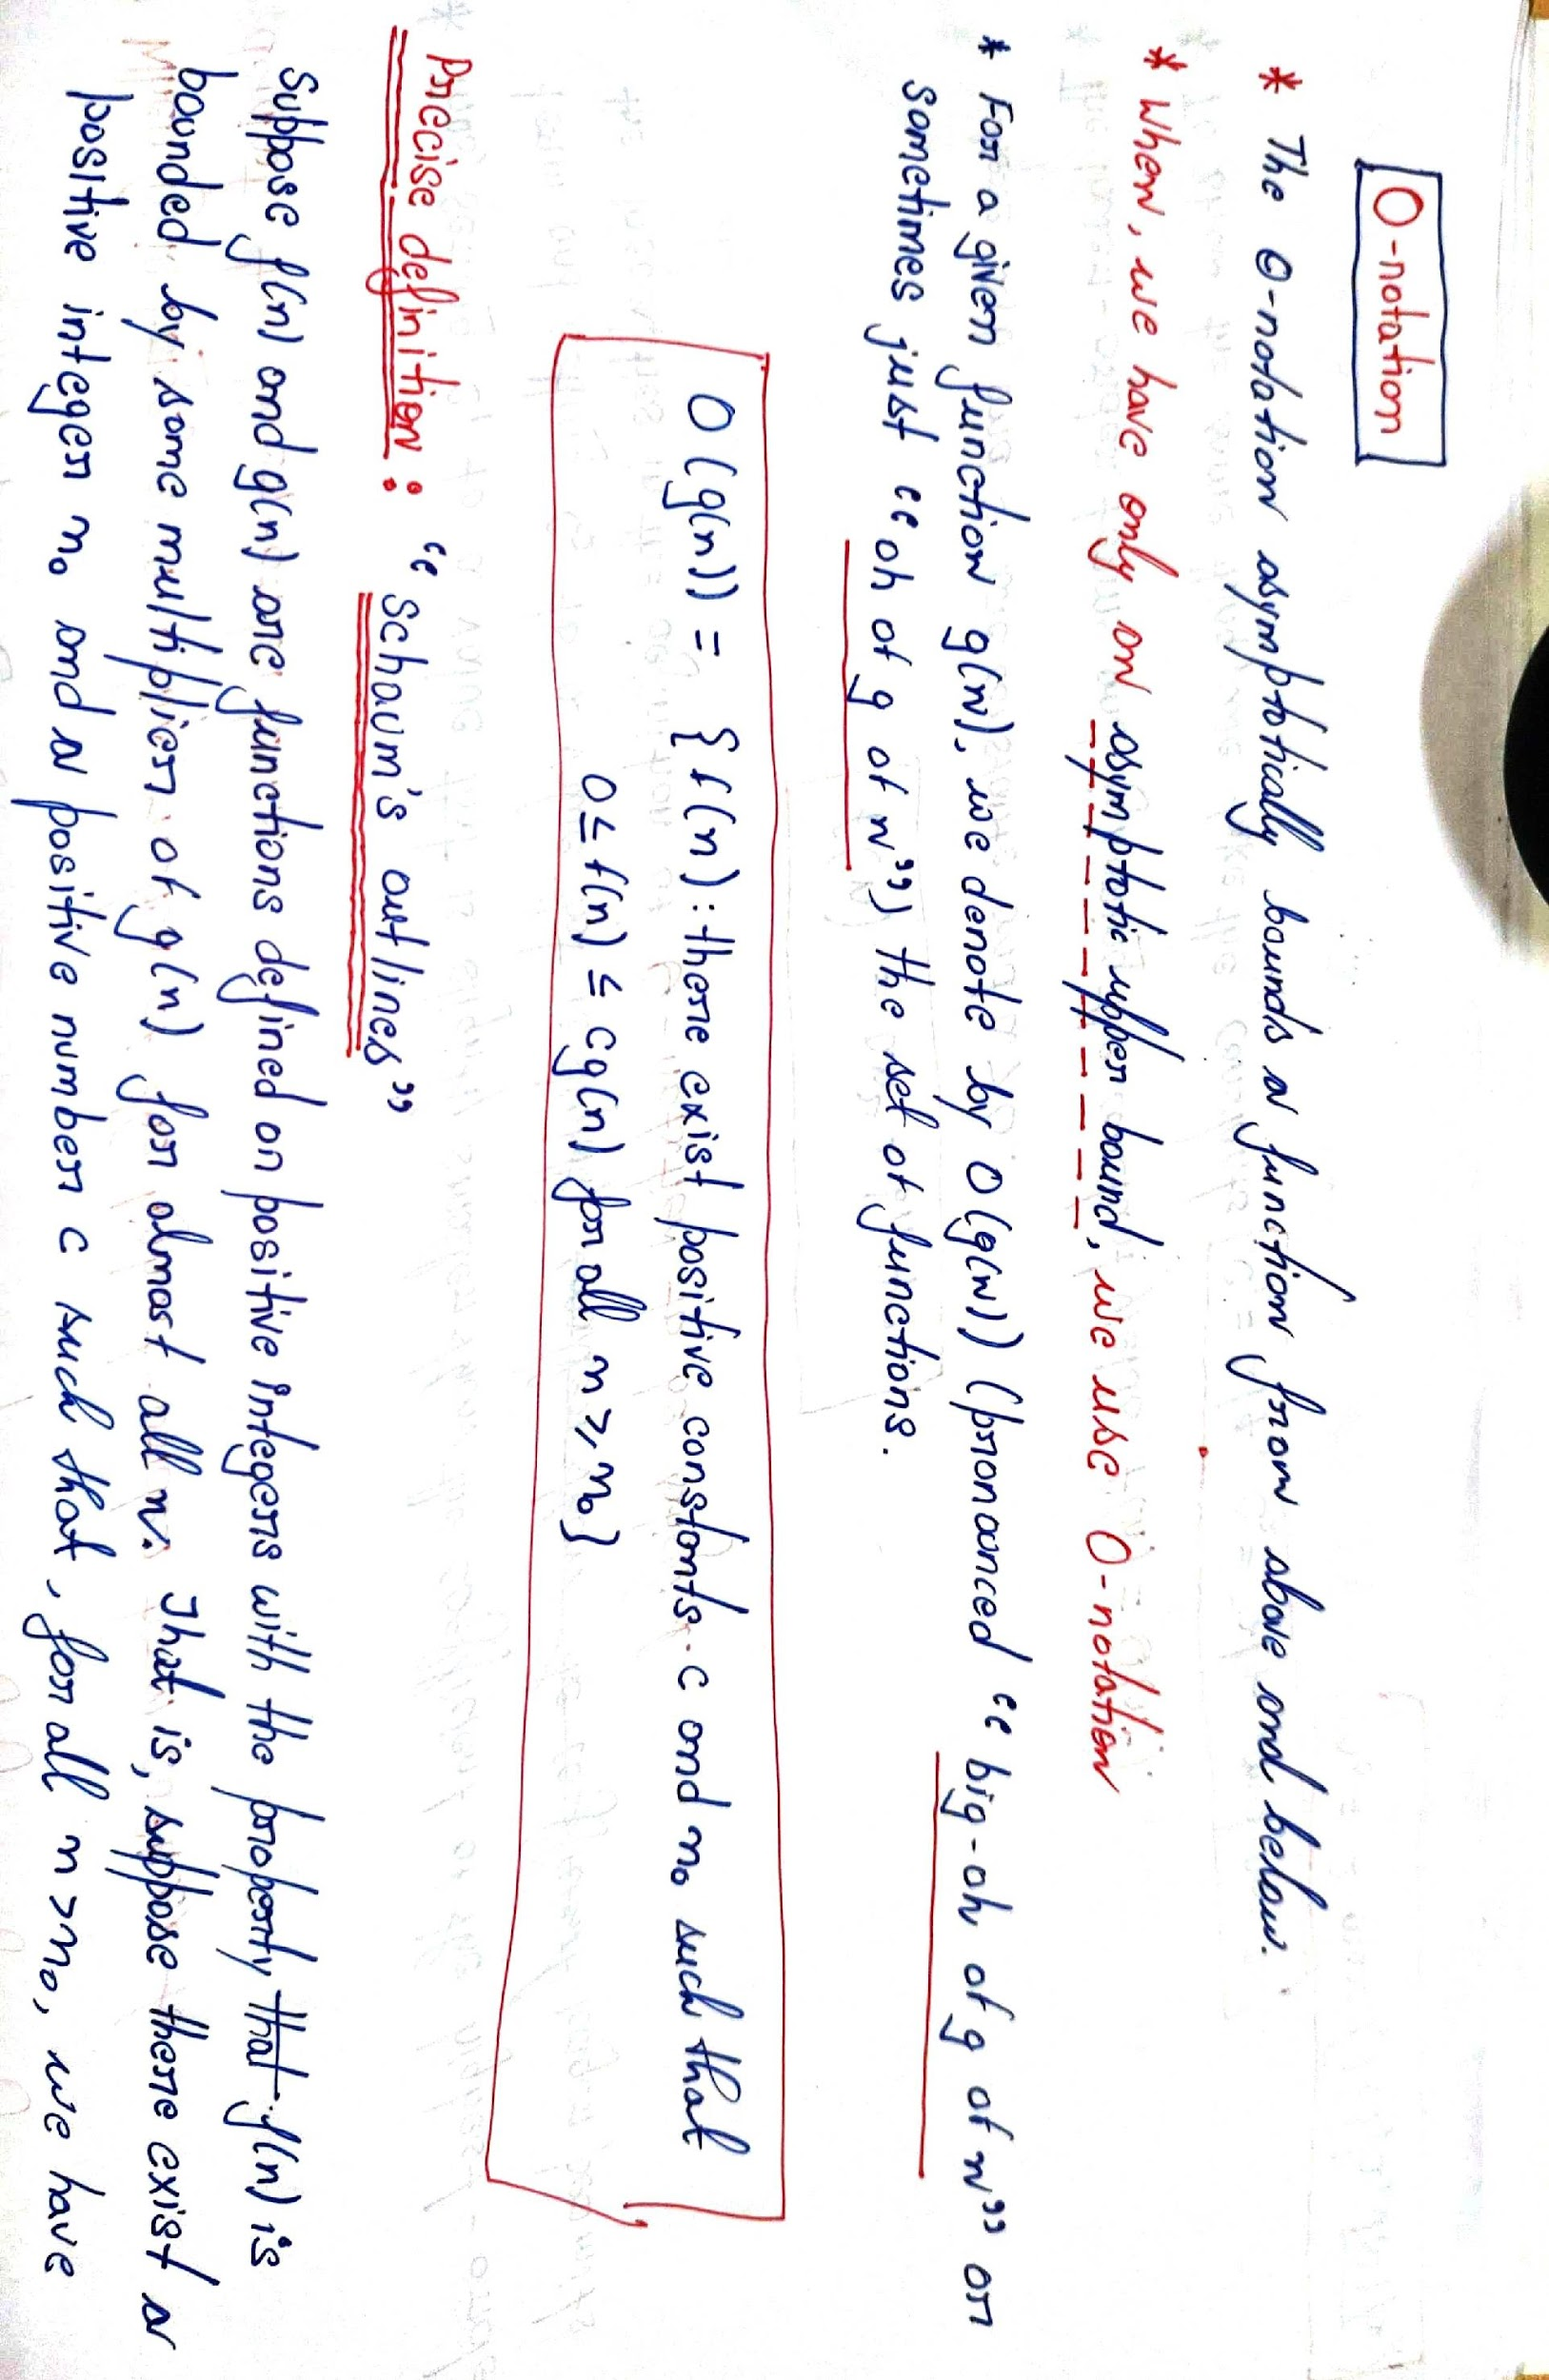 O-notation
* The Θ-notation asymptotically bounds a function from above and below.
* When, we have only an asymptotic upper bound, we use O-notation
* For a given function g(n), we denote by O(g(n)) (pronounced "big-oh of g of n" or
sometimes just "oh of g of n") the set of functions.
O(g(n)) = {f(n): there exist positive constants c and n₀ such that
0 ≤ f(n) ≤ cg(n) for all n ≥ n₀}
Precise definition: "Schaum's outlines"
Suppose f(n) and g(n) are functions defined on positive integers with the property that f(n) is
bounded by some multiplier of g(n) for almost all n. That is, suppose there exist a
positive integer n₀ and a positive number c such that, for all n > n₀, we have